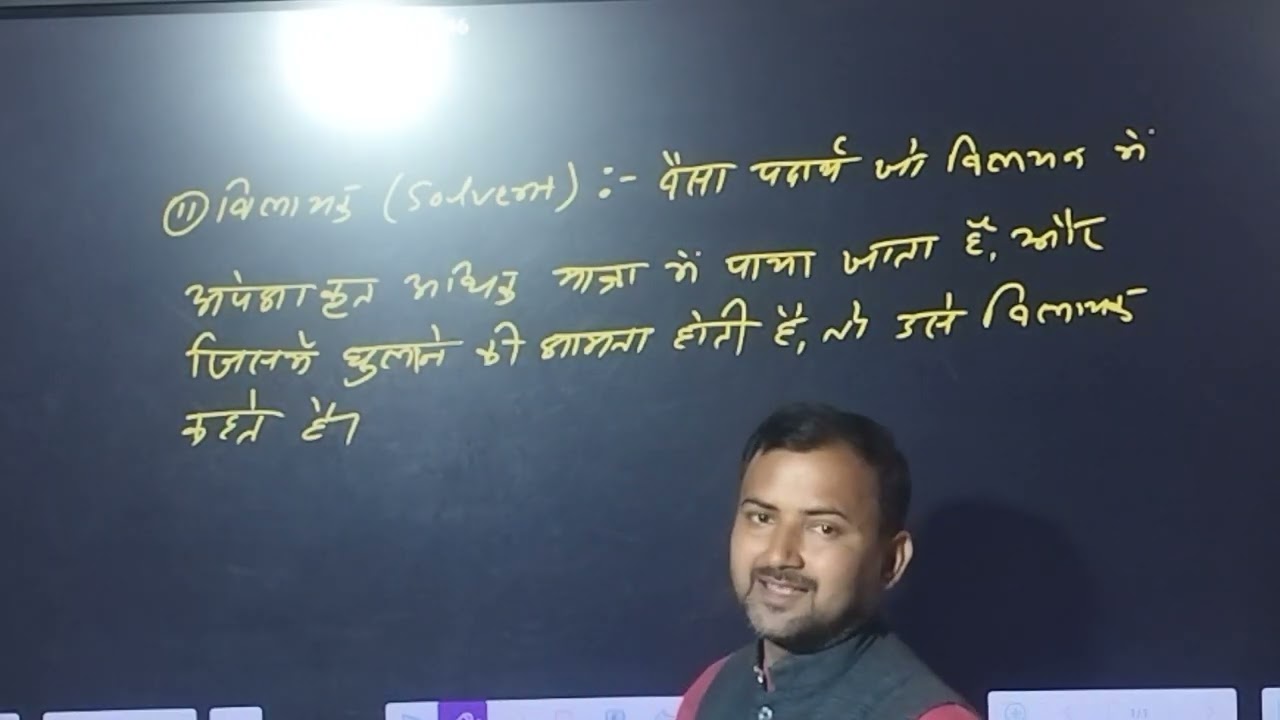 (ii) विलायक (Solvent) :- वैसा पदार्थ जो विलयन में
अपेक्षाकृत अधिक मात्रा में पाया जाता है, और
जिसमें घुलाने की क्षमता होती है, तो उसे विलायक
कहते हैं।
1/1